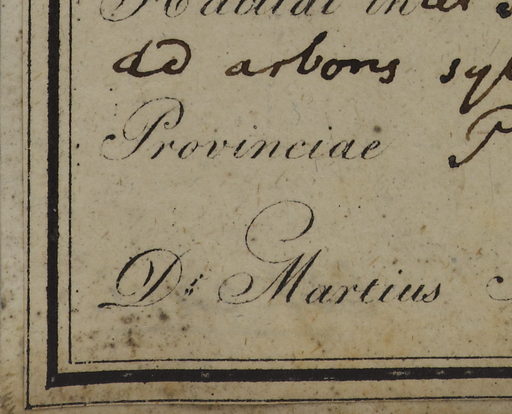 Habitat inter
ad arbores
Provinciae
Dr Martius